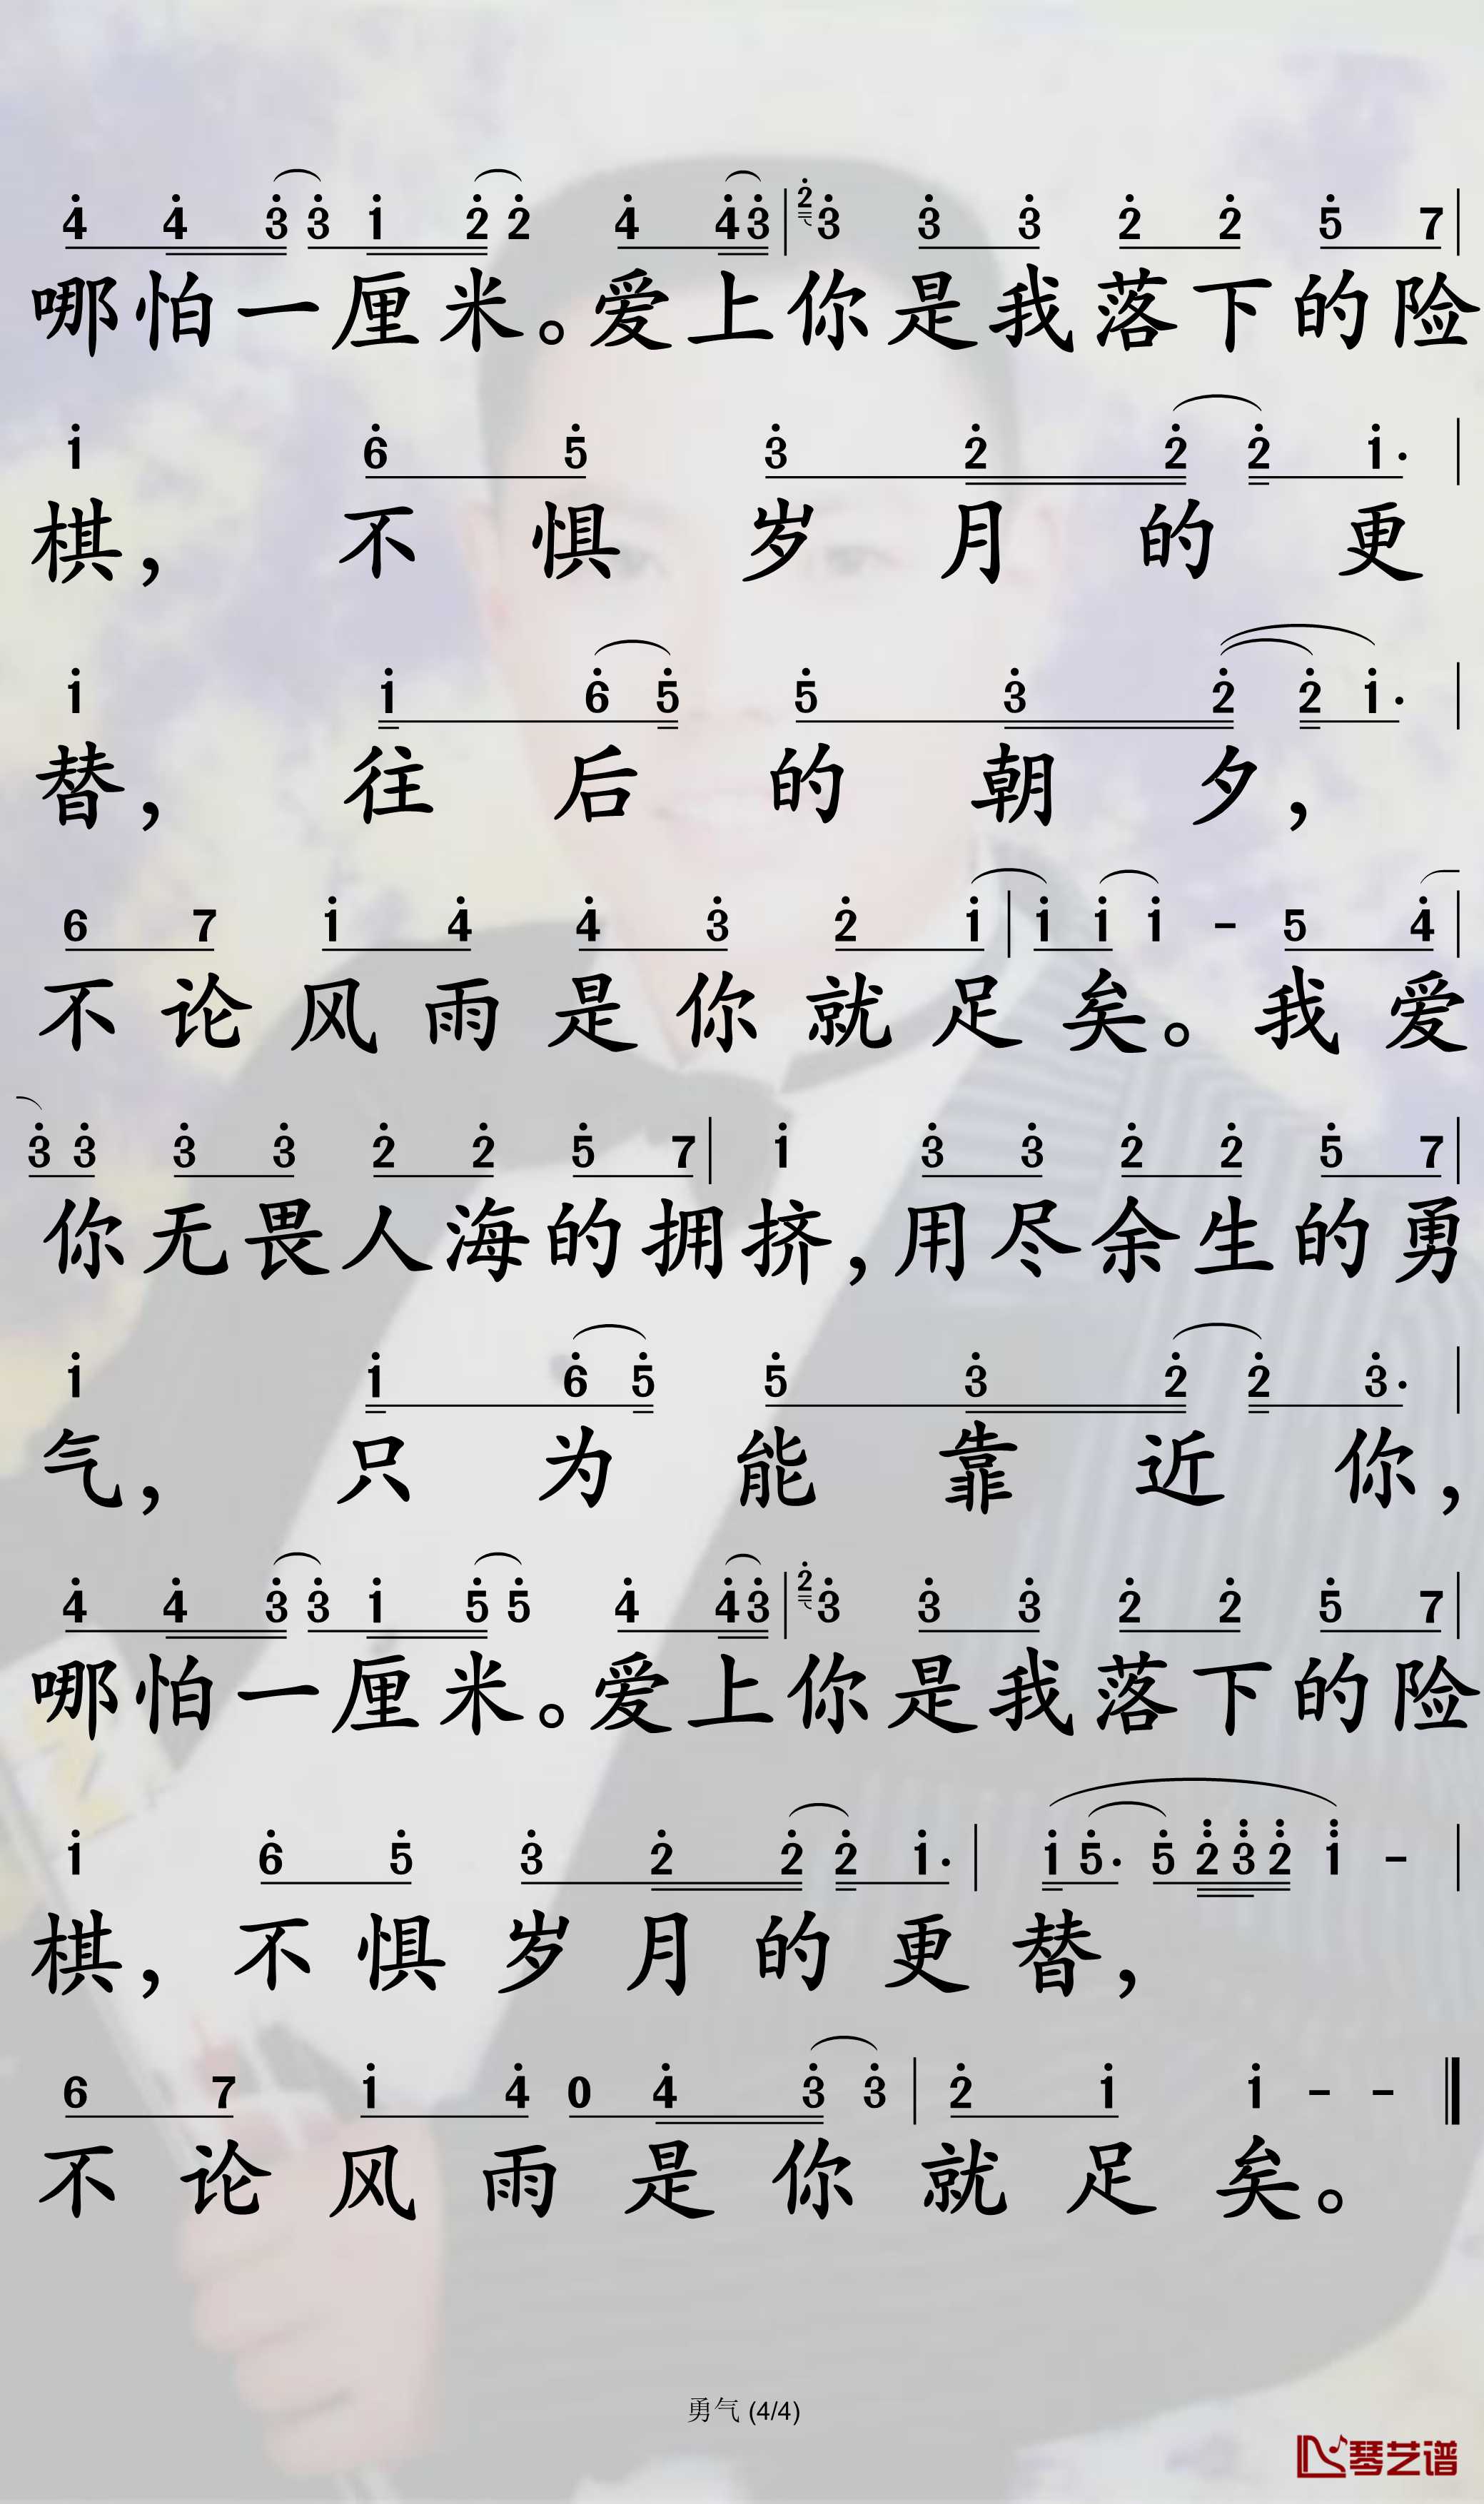 4 4 3 3 1 2 2 4 4 3 | 2 3 3 3 2 2 5 7 |
哪怕一厘米。爱上你是我落下的险
1 6 5 3 2 2 2 1· |
棋，不惧岁月的更
1 1 6 5 5 3 2 2 1· |
替，往后的朝夕，
6 7 1 4 4 3 2 1 | 1 1 1 - 5 4 |
不论风雨是你就足矣。我爱
3 3 3 3 2 2 5 7 | 1 3 3 2 2 5 7 |
你无畏人海的拥挤，用尽余生的勇
1 1 6 5 5 3 2 2 3· |
气，只为能靠近你，
4 4 3 3 1 5 5 4 4 3 | 2 3 3 3 2 2 5 7 |
哪怕一厘米。爱上你是我落下的险
1 6 5 3 2 2 2 1· | 1 5· 5 2 3 2 1 - |
棋，不惧岁月的更替，
6 7 1 4 0 4 3 3 | 2 1 1 - - ‖
不论风雨是你就足矣。
勇气 (4/4)
琴艺谱